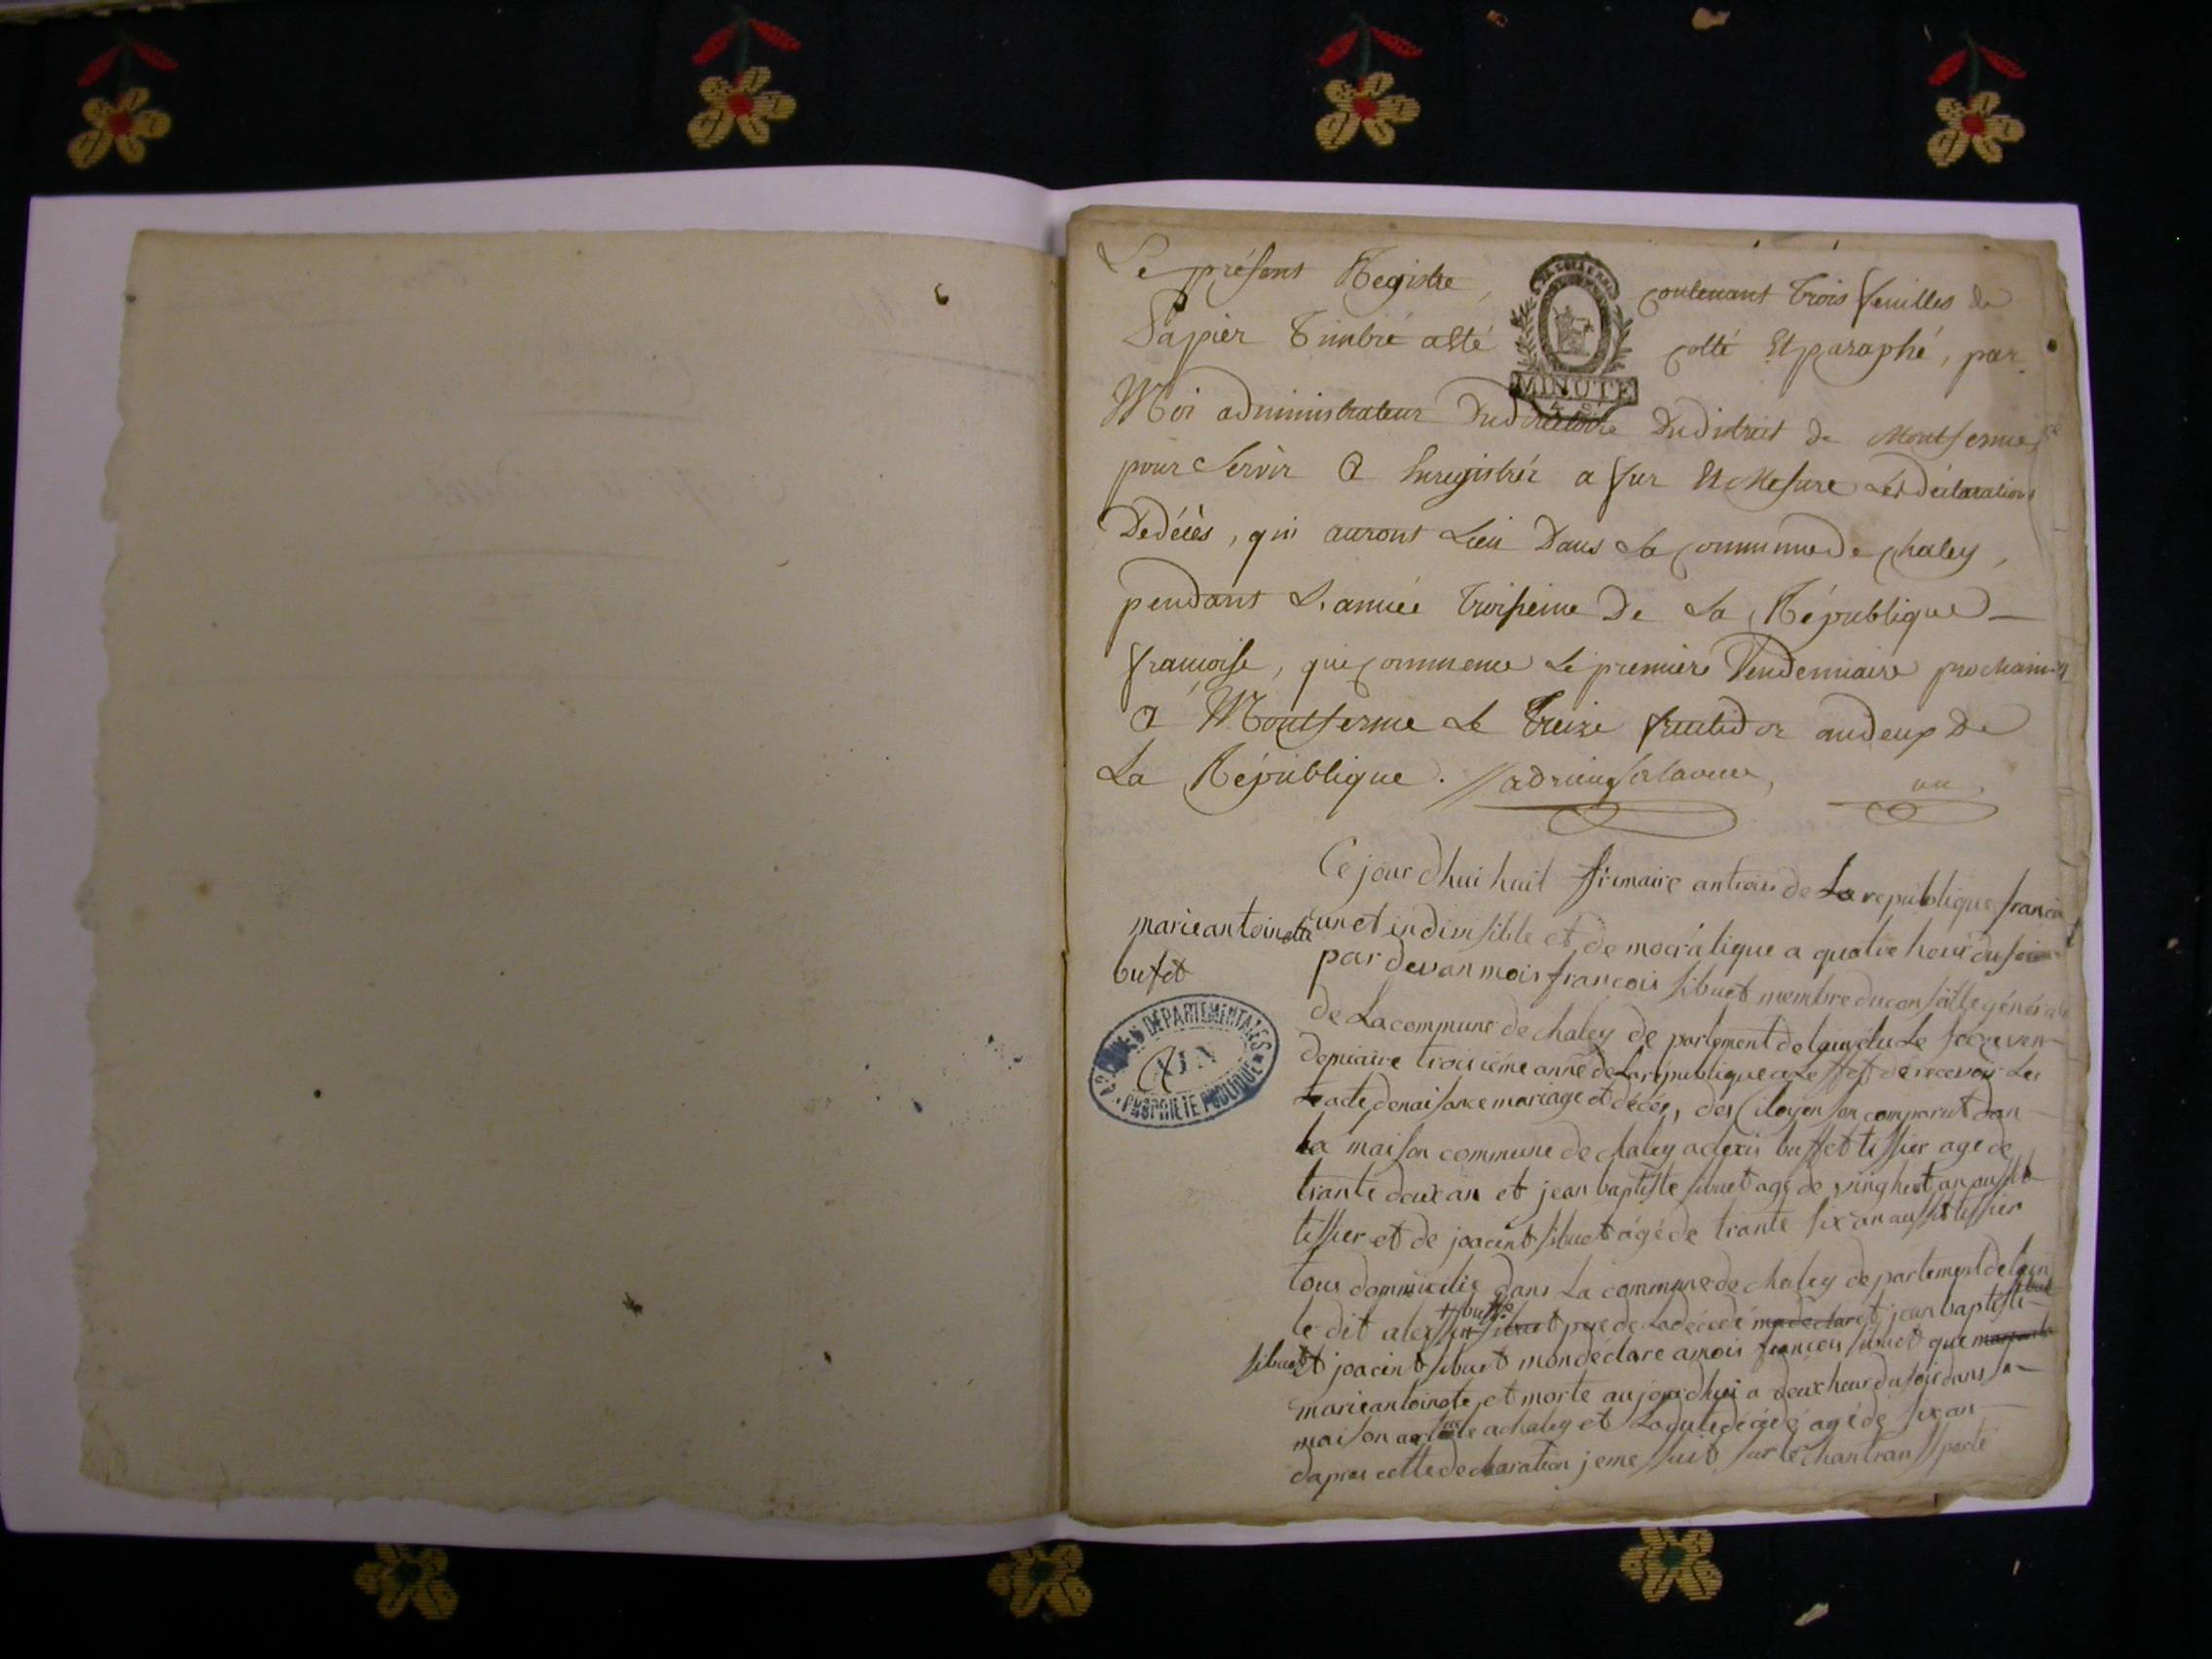 Le présent Registre, contenant trois feuilles de
Papier Timbré a été cotté Et paraphé, par
MINUTE
Moi administrateur Du directoire Du district de Montferme
pour Servir a Enregistrér a fur Et Mesure Les déclarations
De décès, qui auront Lieu Dans La commune de chaley,
pendant L'année troisième De La République
françoise, qui commence Le premiere Vendemiaire prochain
a Montferme Le treize fructidor an deux De
La République.
un
Ce jourdhui huit frimaire an trois de La republique francai
marie antoinette
bufet
un et indivisible et democratique a quatre heur du soir
par devan mois francois sibuet membre du consaille générale
de La commune de chaley departement de lain élu Le
demiaire troisieme anné de La republique a Leffet de recevoir Les
acte de naisance mariage et décés, des Citoyen son comparut dan
ARCHIVES DÉPARTEMENTALES
AIN
PROPRIÉTÉ PUBLIQUE
La maison commune de chaley alexis buffet tissier age de
trante deux an et jean baptiste sibuet agé de vingh an aussit
tissier et de joacint sibuet ágé de trante six an aussit tissier
tous dommicilie dans La commune de chaley departement de lain
le dit alexis buffet pere de La décédé jean baptiste
sibuet
sibuet et joacint sibuet mon declare a mois francois sibuet que
marie antoinete et morte aujourdhui a deux heur du soir dans sa
maison a chaley et agé de six an
dapres cette declaration je me suit sur le chan transporté